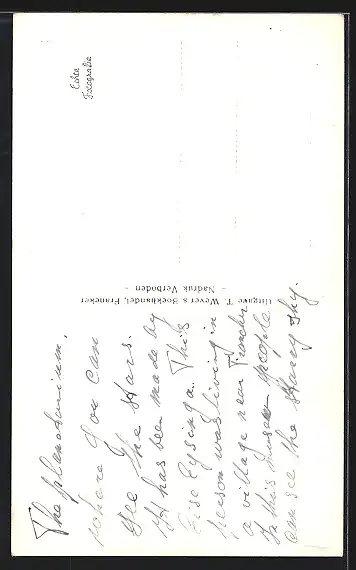 Echte
Fotografie
Uitgave T. Wever's Boekhandel, Franeker
- Nadruk Verboden -
The planetarium,
where you can
see the stars.
It has been made by
Eise Eysinga. This
person was living in
a village near Franeker
In this museum people
can see the starry sky.